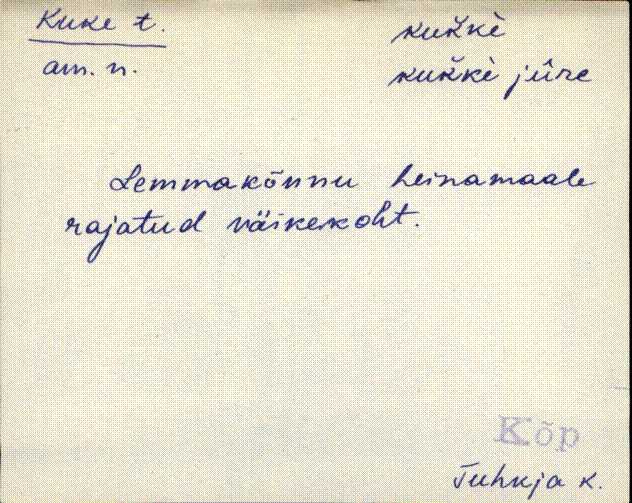 Kuke t.
kuk̆kè
am. n.
kuk̆kè jûre
Lemmakõnnu heinamaale
rajatud väikekoht.
Kõp
Tuhkja k.